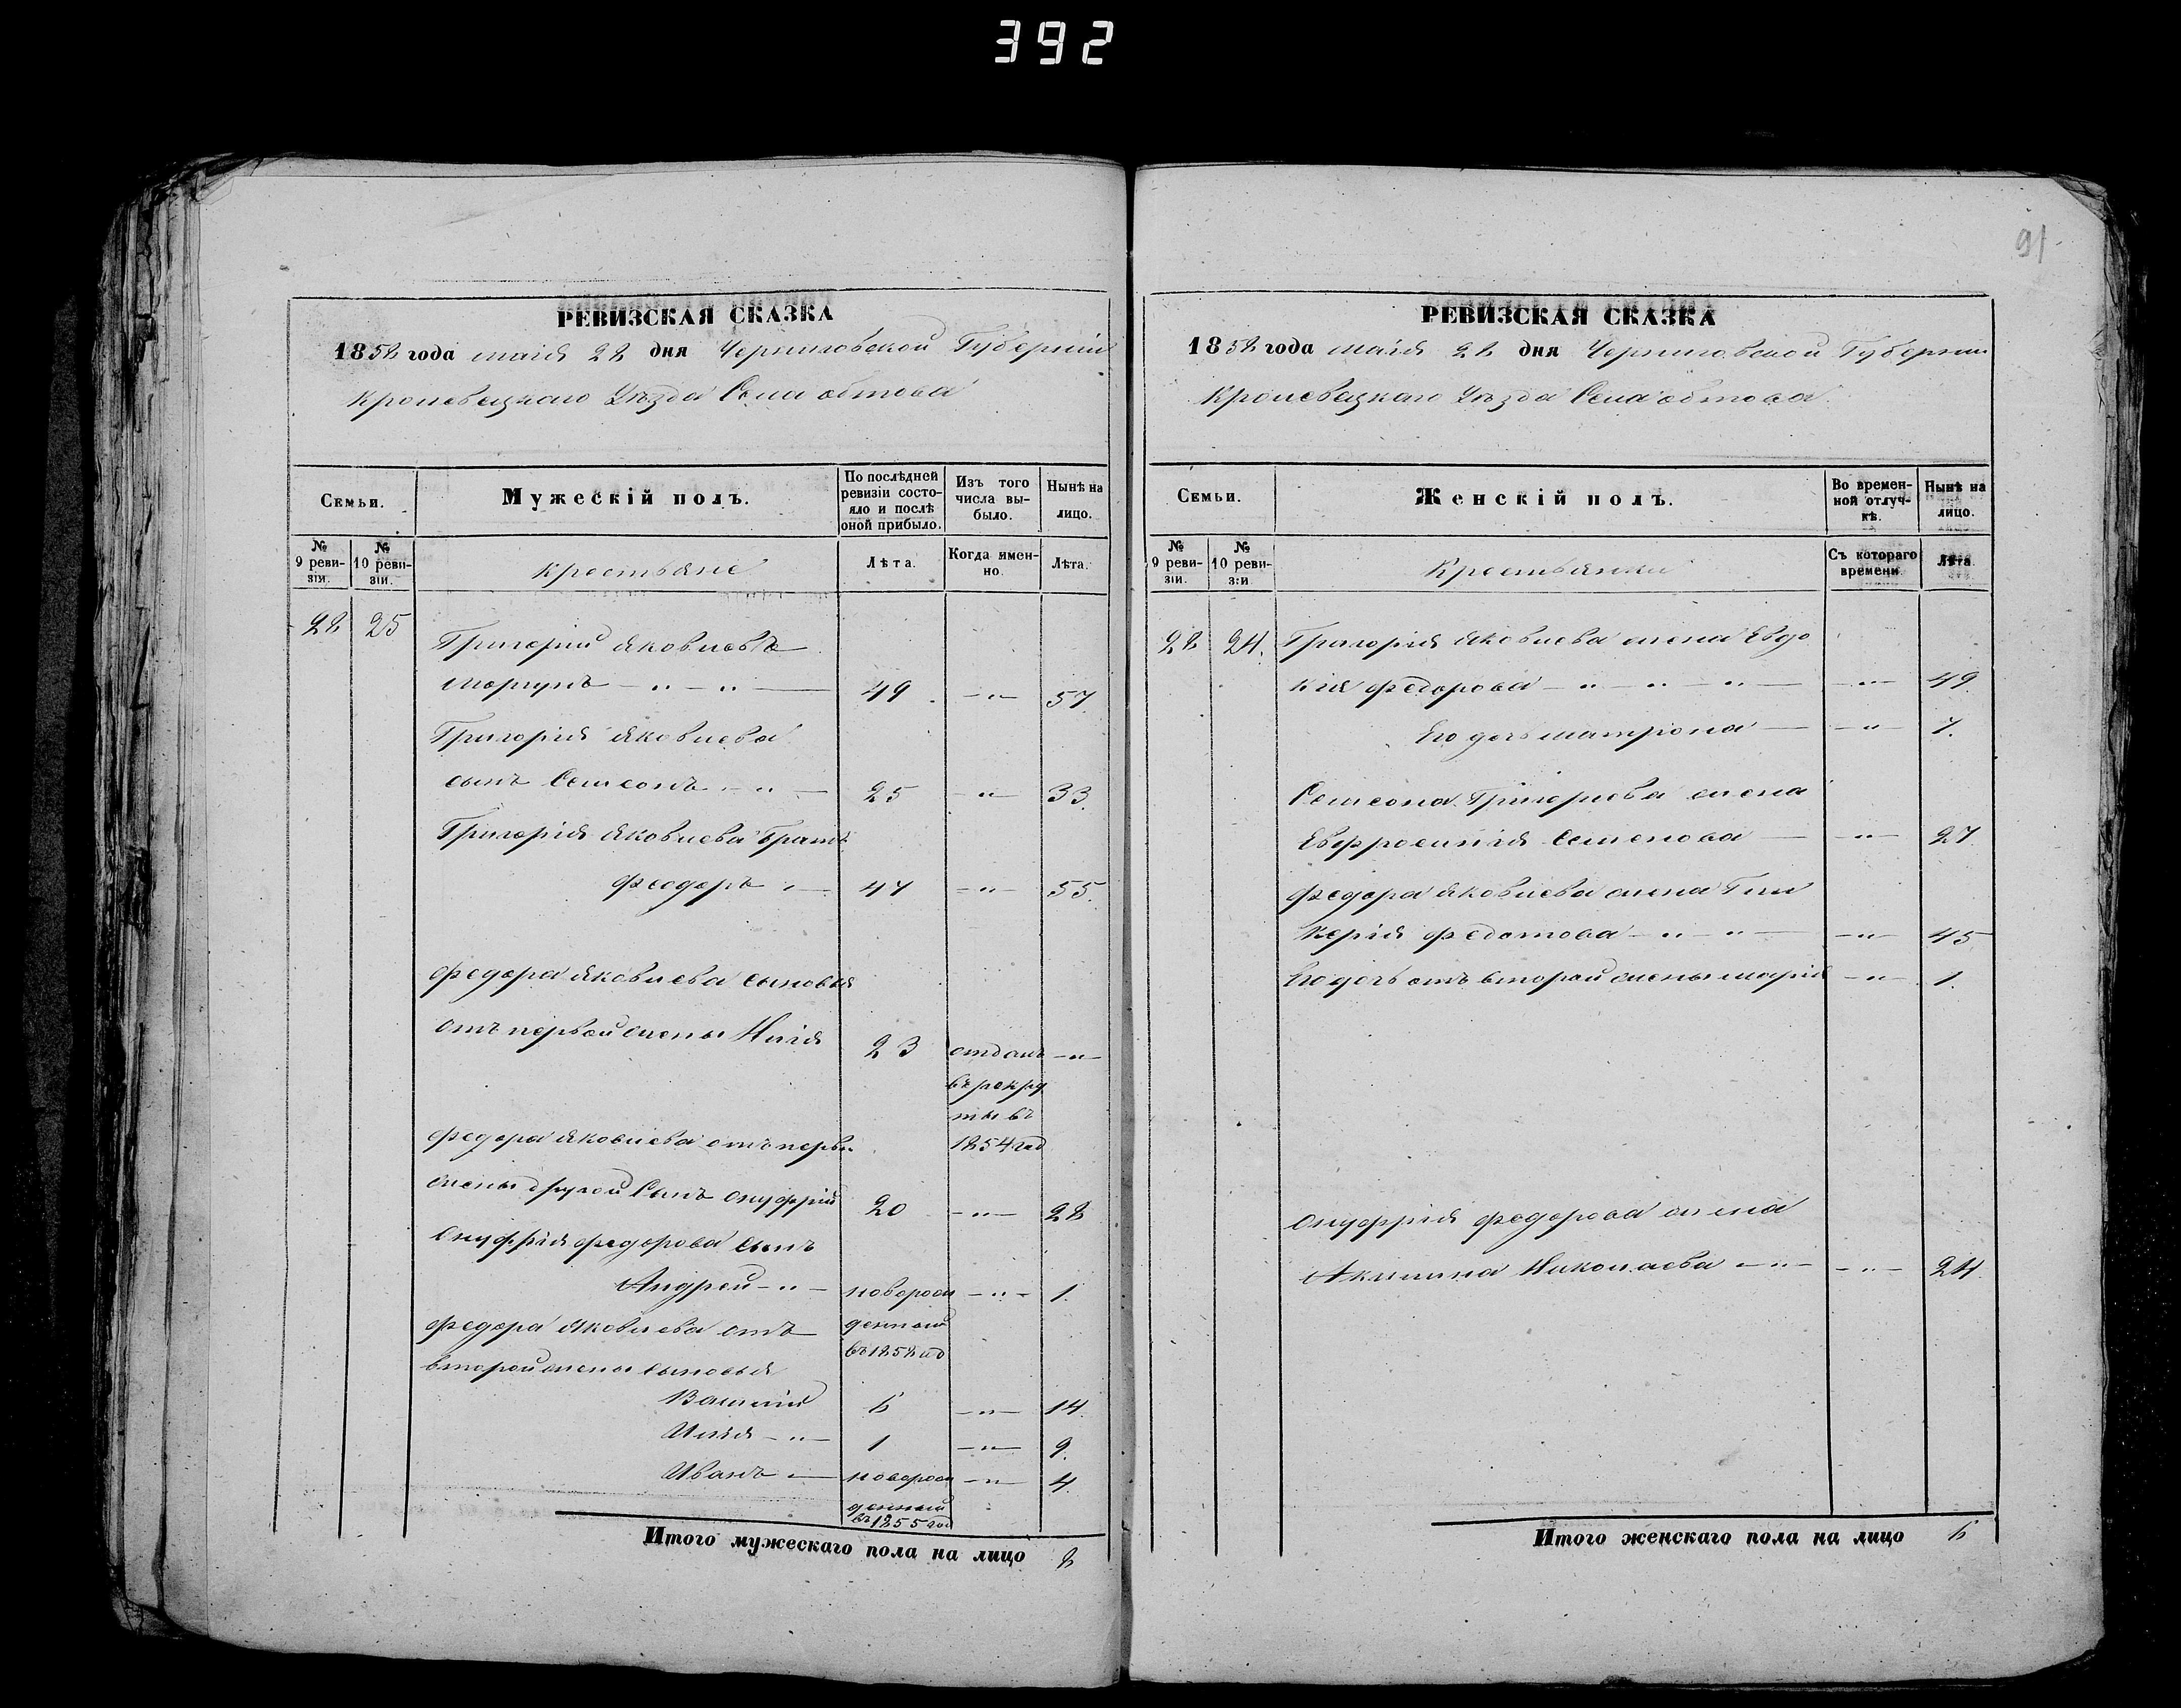 392
91
РЕВИЗСКАЯ СКАЗКА
1858 года маія 28 дня Черниговской Губерніи
Кролевецкаго Уѣзда Села Обтова
Семьи.
Мужескій полъ.
По послѣдней ревизіи состояло и послѣ оной прибыло.
Изъ того числа выбыло.
Нынѣ на лицо.
№ 9 ревизіи.
№ 10 ревизіи.
Крестьяне
Лѣта.
Когда именно.
Лѣта.
28 25 Григорій Яковлевъ
– „ – „ – 49 – „ – 57
Григорія Яковлева
сынъ Самсонъ – „ – 25 – „ – 33.
Григорія Яковлева братъ
Феодоръ – 47 – „ – 55.
Федора Яковлева сыновья
отъ первой жены Илія 23 отданъ – „ –
въ рекру
ты въ
Федора Яковлева отъ перво. 1854 год
жены другой сынъ Онуфрій 20 – „ – 28
Онуфрія Федорова сынъ
Андрей – „ – новорож – „ – 1.
Федора Яковлева отъ денный
второй жены сыновья въ 1858 год
Василій 6 – „ – 14.
Илья – „ – 1 – „ – 9.
Иванъ – новорож – „ – 4
денный
въ 1855 год
Итого мужескаго пола на лицо 8
РЕВИЗСКАЯ СКАЗКА
1858 года маія 28 дня Черниговской Губерніи
Кролевецкаго Уѣзда Села Обтова
Семьи.
Женскій полъ.
Во временной отлучкѣ.
Нынѣ на лицо.
№ 9 ревизіи.
№ 10 ревизіи
Крестьянки
Съ котораго времени.
Лѣта.
28 24. Григорія Яковлева жена Евдо
кия Федорова – „ – „ – „ – – „ – 49.
Его дочь Матрона – – „ – 7.
Самсона Григорьева жена
Евфросинія Семенова – – „ – 27
Федора Яковлева жена Гли
керія Федотова – „ – „ – – „ – 45
Его дочь отъ второй жены Марія – „ – 1.
Онуфрія Федорова жена
Акилина Николаева – „ – – „ – 24.
Итого женскаго пола на лицо 6